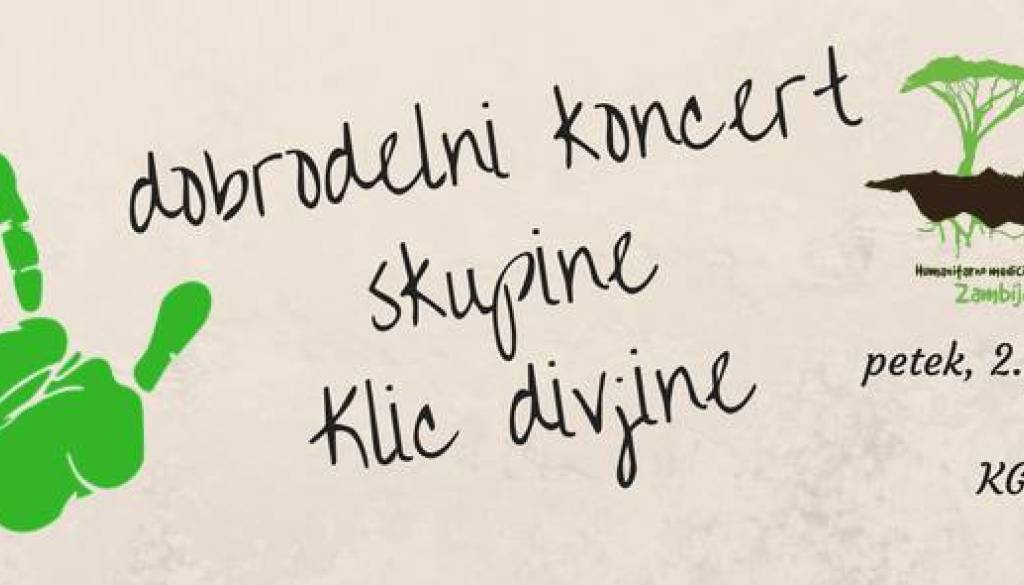 dobrodelni koncert
skupine
Klic divjine
Humanitarno medici
Zambij
petek, 2.
KG